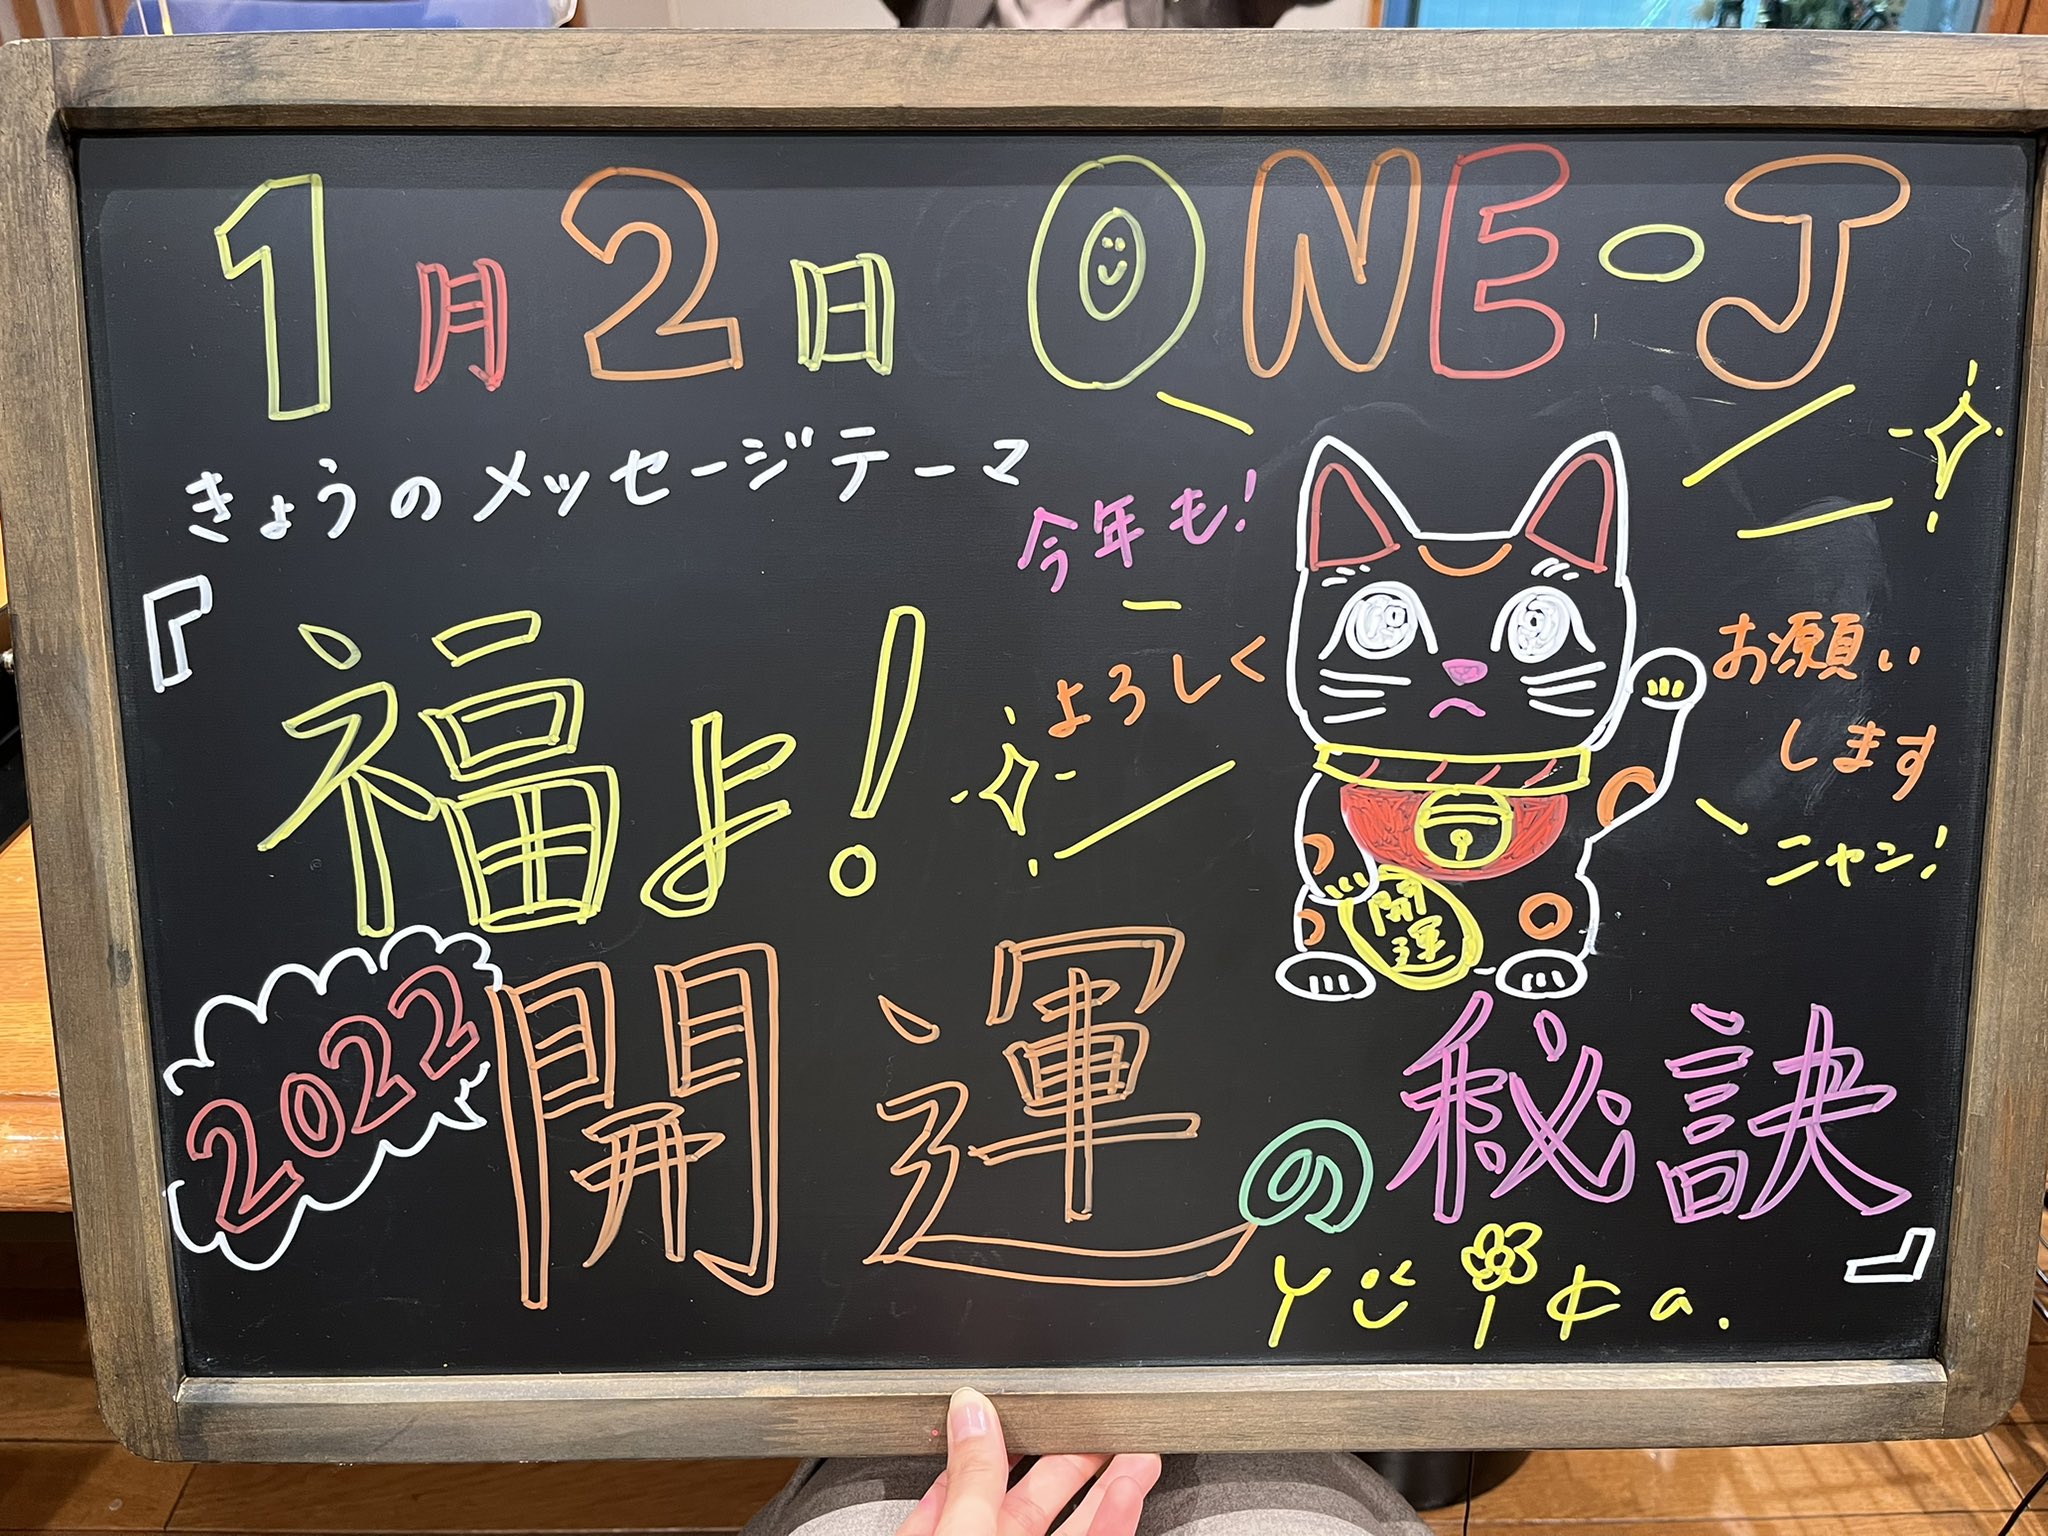 1月2日 ONE-J
きょうのメッセージテーマ
『福よ！
2022
開運の秘訣』
今年も！
よろしく
お願い
します
ニャン！
開運